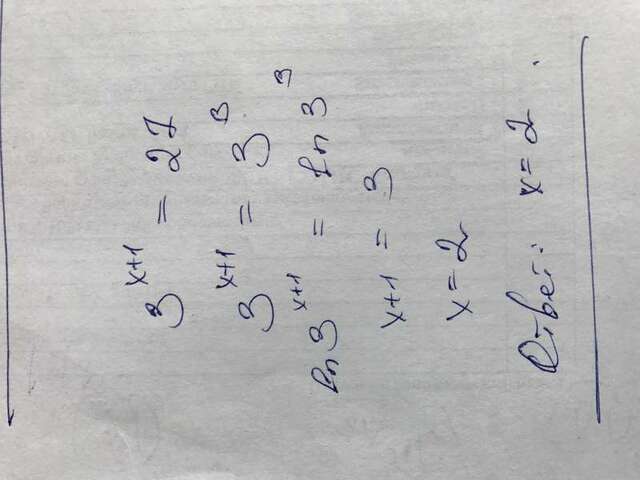 3^{x+1} = 27
3^{x+1} = 3^3
ln 3^{x+1} = ln 3^3
x+1 = 3
x = 2
Ответ: x = 2.